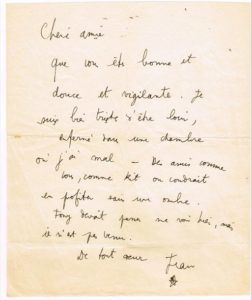 Chère amie
que vous êtes bonne et
douce et vigilante. Je
suis bien triste d'être loin,
enfermé dans une chambre
où j'ai mal – Des amis comme
vous, comme Kit on voudrait
en profiter sans une ombre.
Tony devait passer me voir hier, mais
il n'est pas venu.
De tout cœur Jean